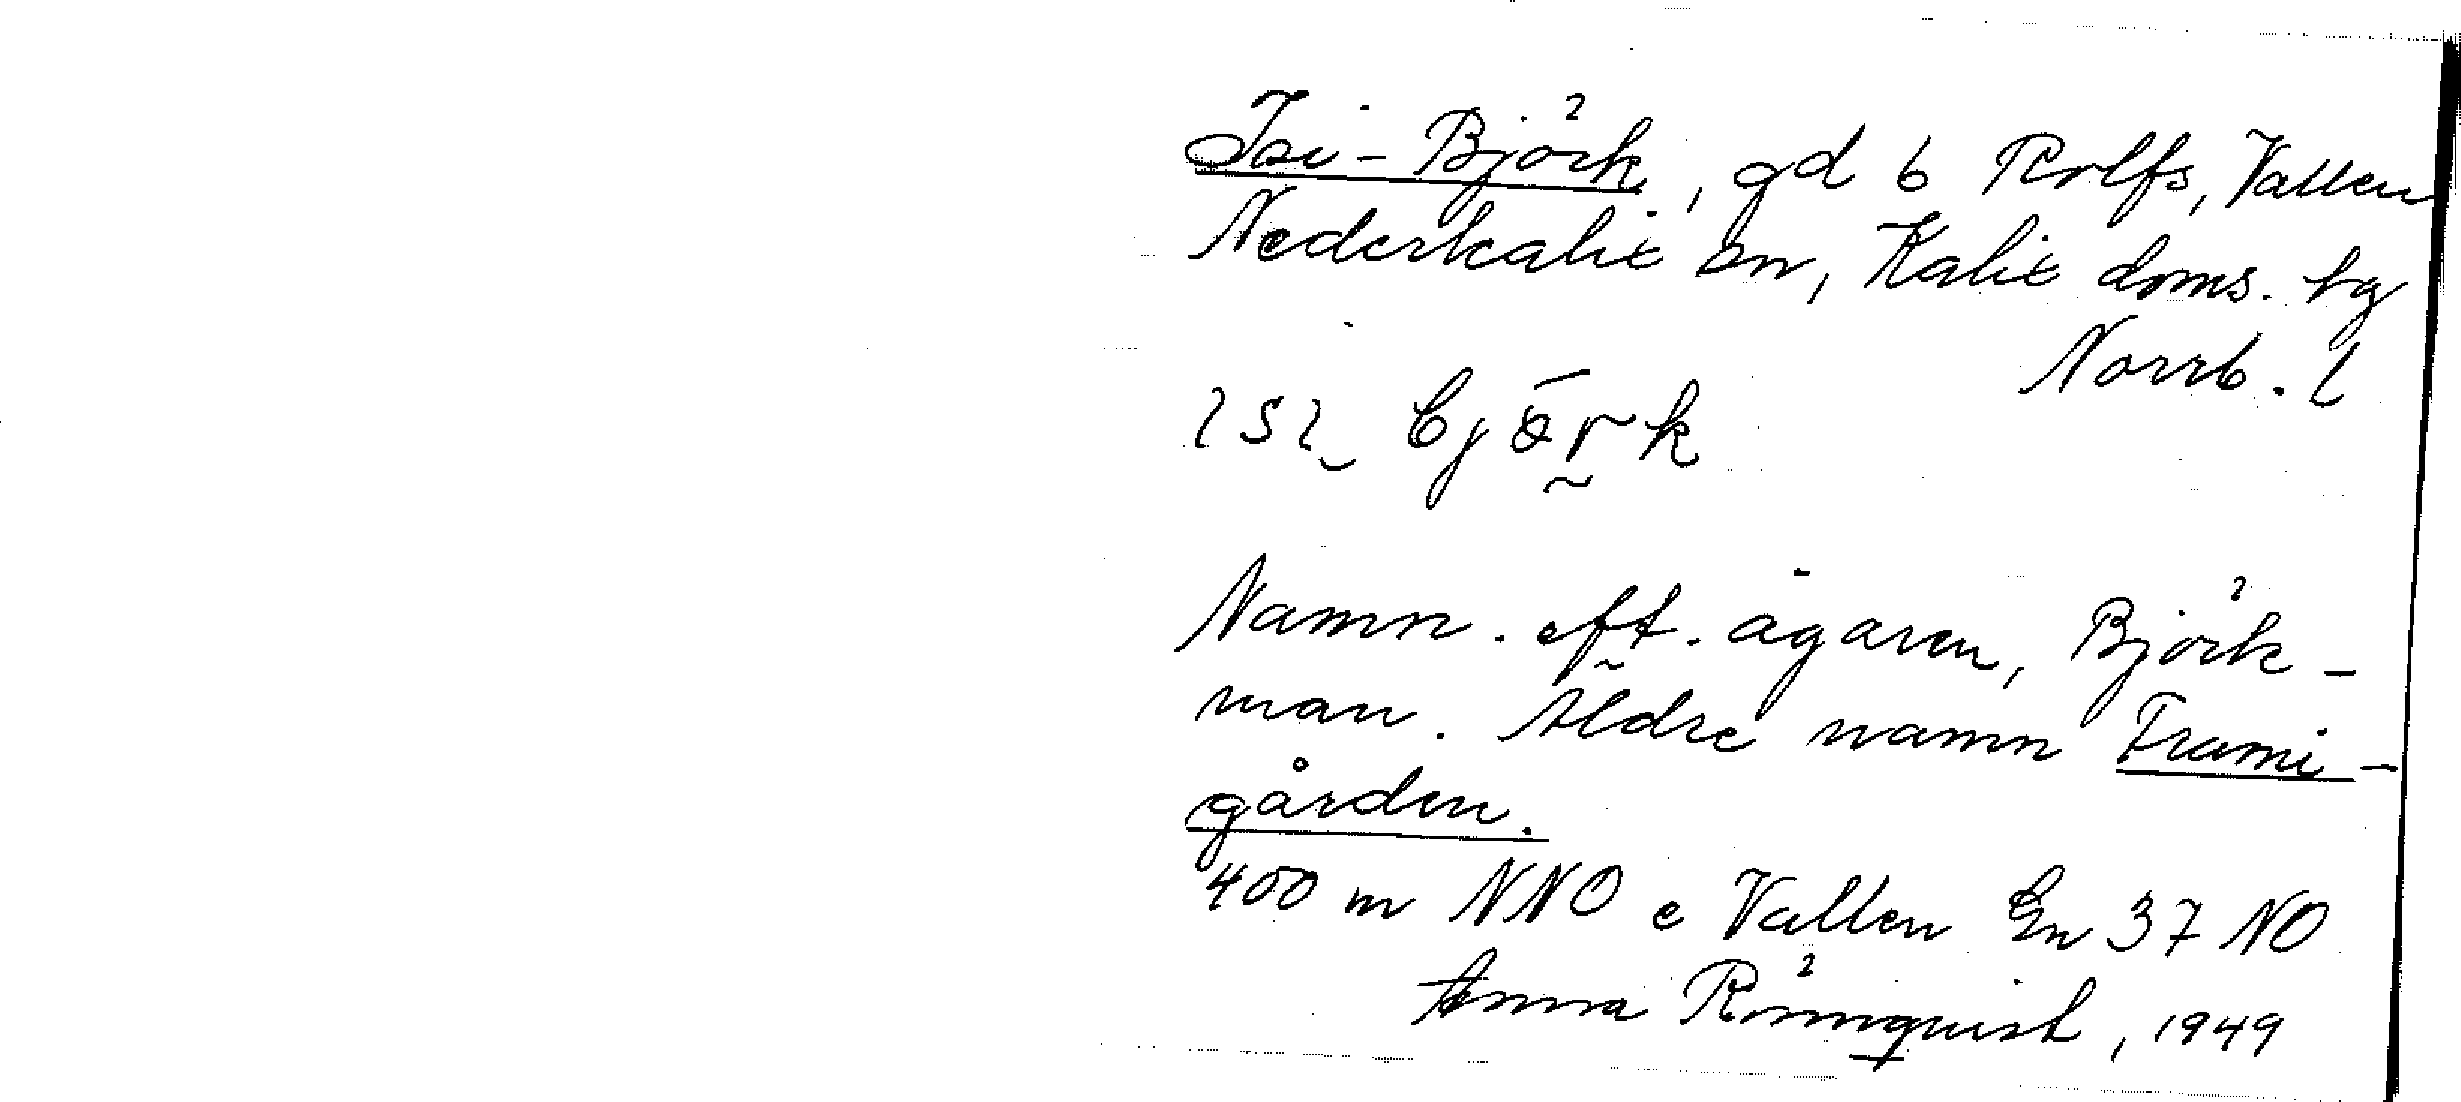 Isi-Björk, gd b Rolfs, Vallen
Nederkalix sn, Kalix doms. tg
Norrb. l
ɩsɩ̮ bjȫr̰k
Namn. eft. ägaren, Björk-
man. Äldre namn Frami-
gården.
400 m NNO e Vallen En 37 NO
Anna Rönnquist, 1949